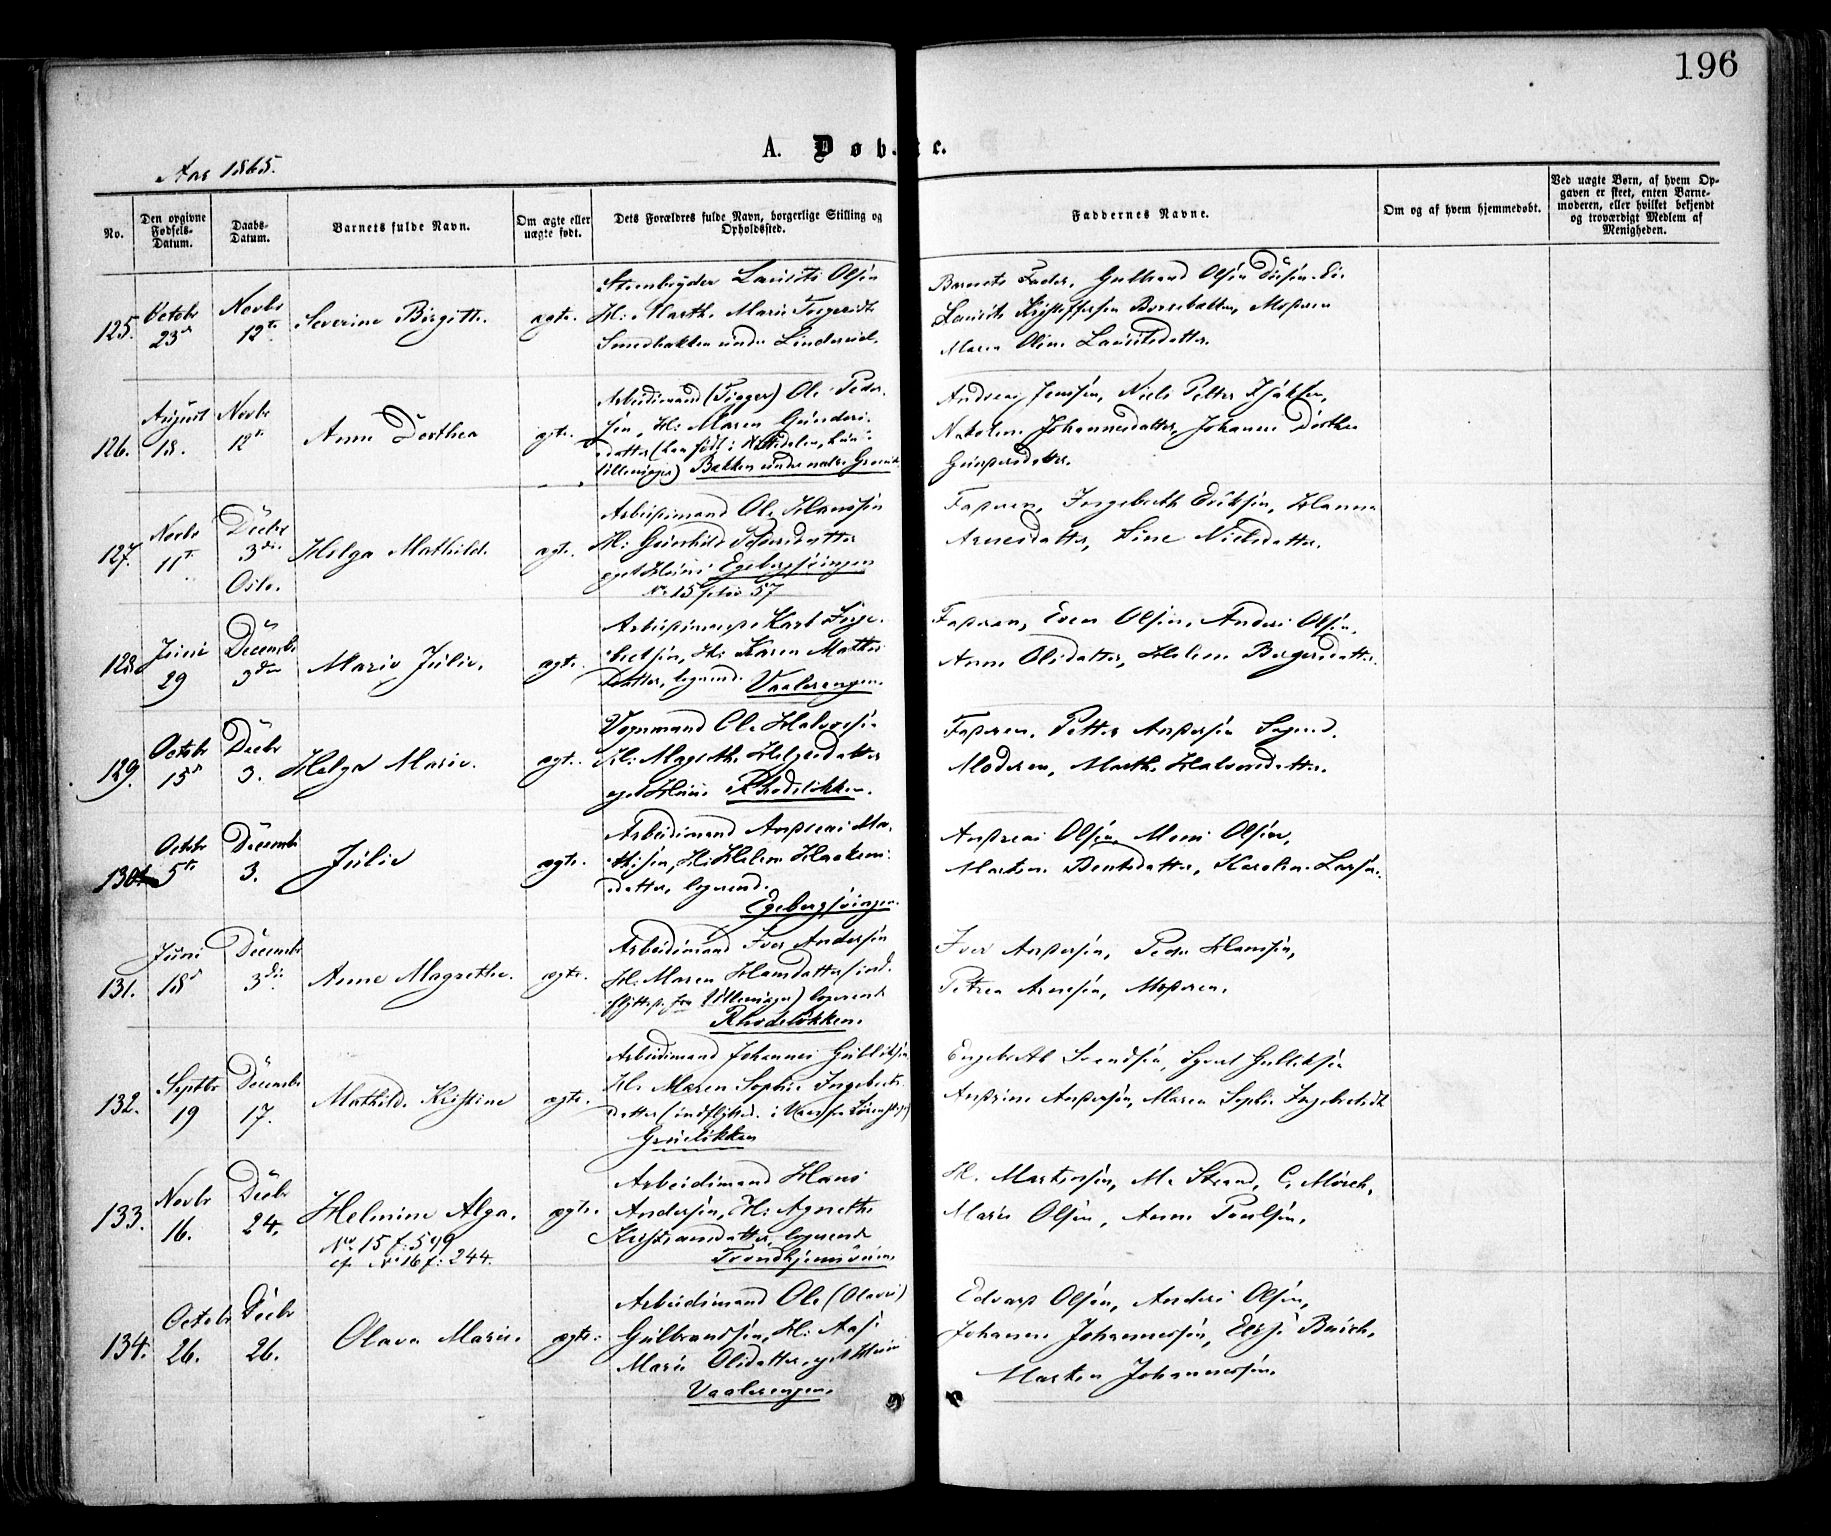 196
A. Døbte.
Aar 1865.
No.
Den opgivne Fødsels-Datum.
Daabs-Datum.
Barnets fulde Navn.
Om ægte eller uægte født.
Dets Forældres fulde Navn, borgerlige Stilling og Opholdssted.
Faddernes Navne.
Om og af hvem hjemmedøbt.
Ved uægte Børn, af hvem Opgaven er skeet, enten Barnemoderen, eller hvilket bekjendt og troværdigt Medlem af Menigheden.
125.
Octobr 23d
Novbr 12te
Severine Birgitte
ægte.
Laurits Olsen
H: Marthe Marie
Smedbakken under Linderud.
Barnets Fader, Gulbrand Olsen
Laurits Kristoffersen
Maren Oline Lauritsdatter.
126.
August 18.
Novbr 12te
Anne Dorthea
ægte.
Arbeidsmand (Tigger) Ole Peder-
sen, H: Maren Gunders-
datter
Bakken under
Andreas Jensen, Niels Petter
Johannesdatter, Johanne Dorthea
127.
Novbr 11te
Decbr 3die
Oslo.
Helga Mathilde
ægte.
Arbeidsmand Ole Hanssen
H: Gunhild Pedersdatter
eget Huus Egebergsvingen
No 15 folio 57
Faderen, Ingebreth Eriksen, Hanna
Arnesdatter, Line Nielsdatter.
128.
Juni 29
Decembr 3die
Marie Julie.
ægte.
Arbeidsmand Karl Inge-
bretsen, H: Karen Mathis
Datter, logerende Vaalerengen.
Faderen, Even Olsen, Anders Olsen,
Anne Olsdatter, Helene Borgersdatter.
129.
Octobr 15d
Decbr 3.
Helga Marie.
ægte.
Vognmand Ole Halvorsen
H: Magrethe Helgesdatter
eget Huus Rhodeløkken.
Faderen, Petter Andersen
Moderen, Marthe Halvorsdatter.
130
Octobr 5te
Decembr 3.
Julie
ægte.
Arbeidsmand Andreas Ma-
thisen, H: Helene Haakens-
datter, logerende
Egebergsvingen.
Andreas Olsen, Moni Olsen,
Marten Berntsdatter, Karoline Larsen.
131.
Juni 18d
Decembr 3die
Anne Magrethe.
ægte.
Arbeidsmand Iver Andersen
H: Maren Hansdatter (ind-
flyttet fra Ullensager) logerende
Rhodeløkken.
Iver Andersen, Peder Hansen,
Petrea Arnesen, Moderen.
132.
Septbr 19
Decembr 17.
Mathilde Kristine
ægte.
Arbeidsmand Johannes Gulliksen
H: Maren Sophie Ingebrets-
datter
Grüneløkken
Engebreth Svendsen, Syvert Gulliksen
Andrine Andersen, Maren Sophie Ingebretsdt
133.
Novbr 16.
Decbr 24.
Helmine Alga.
No 15 f: 549
cfr No 16 f: 244.
ægte.
Arbeidsmand Hans
Andersen, H: Agnethe
Kristiansdatter, logerende
Trondhjemsveien
H. Martinsen, M. Strand, C. Mørch,
Marie Olsen, Anne Poulsen.
134.
Octobr 26.
Decbr 26.
Olava Marie.
ægte.
Arbeidsmand Ole (Olaves)
Gulbrandsen, H: Aase
Marie Olsdatter, eget Huus
Vaalerengen.
Edvard Olsen, Anders Olsen,
Johanne Johannessen, Else Busch,
Marten Johannessen.